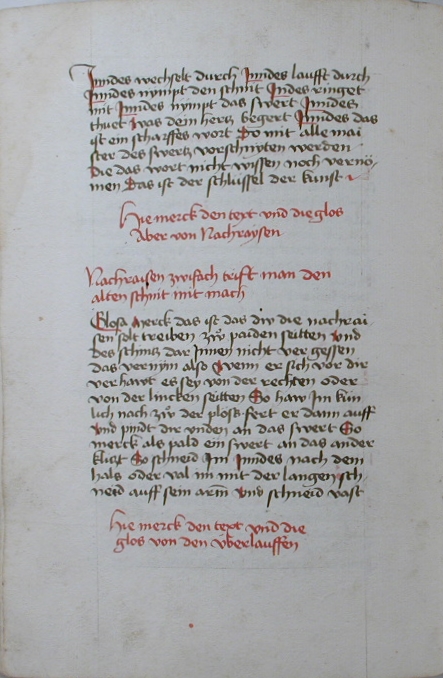 Inndes wechselt durch Inndes laufft durch
Inndes nympt den schnit Indes ringet
mit Inndes nympt das swert Inndes
thuet was dein hertz begert Inndes das
ist ein scharffes wort Do mit alle mai
ster des swertz vorschnyten werden
die das wort nicht wissen noch vernö
men Das ist der schlussel der kunst
Hie merck den text vnd die glos
Aber von Nachraysen
Nachraisen zwifach trift man den
alten schnit mit mach
Glosa Merck das ist das dw die nachrai
sen solt treiben zw paiden seitten vnd
des schnitz dar Innen nicht ver gessen
das vernym also Wenn er sich vor dir
verhawt es sey von der rechten oder
von der lincken seitten So haw im kün
lich nach zw der plosk fert er dann auff
vnd pindt dir vnden an das swert So
merck als pald ein swert an das ander
klitzt So schneid Im Inndes nach dem
hals oder val im mit der langen sch
neid auff sein arm vnd schneid vast
Hie merck den text vnd die
glos von den vberlauffen